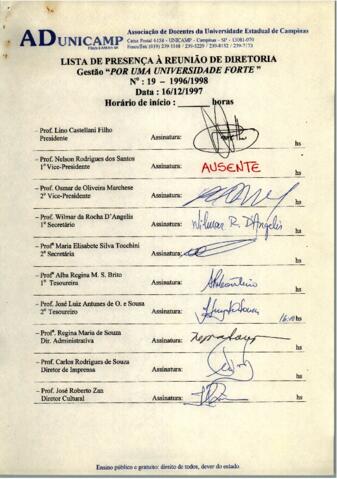 ADUNICAMP
Associação de Docentes da Universidade Estadual de Campinas
Caixa Postal 6158 - UNICAMP - Campinas - SP - 13081-970
LISTA DE PRESENÇA À REUNIÃO DE DIRETORIA
Gestão "POR UMA UNIVERSIDADE FORTE"
Nº : 19 - 1996/1998
Data : 16/12/1997
Horário de início : ______ horas
- Prof. Lino Castellani Filho Assinatura:
Presidente hs
- Prof. Nelson Rodrigues dos Santos Assinatura: AUSENTE
1º Vice-Presidente hs
- Prof. Osmar de Oliveira Marchese Assinatura:
2º Vice-Presidente hs
- Prof. Wilmar da Rocha D'Angelis Assinatura: Wilmar R. D'Angelis
1º Secretário hs
- Profª Maria Elisabete Silva Tocchini Assinatura:
2ª Secretária hs
- Profª Alba Regina M. S. Brito Assinatura:
1ª Tesoureira hs
- Prof. José Luiz Antunes de O. e Sousa Assinatura:
2º Tesoureiro hs
- Profª. Regina Maria de Souza Assinatura:
Dir. Administrativa hs
- Prof. Carlos Rodrigues de Souza Assinatura:
Diretor de Imprensa hs
- Prof. José Roberto Zan Assinatura:
Diretor Cultural hs
Ensino público e gratuito: direito de todos, dever do estado.